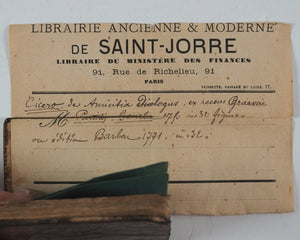 LIBRAIRIE ANCIENNE & MODERNE
DE SAINT-JORRE
LIBRAIRE DU MINISTÈRE DES FINANCES
91, Rue de Richelieu, 91
PARIS
Cicero de Amicitia Dialogus, ex recens Graevii
M
ou édition Barbou 1771. in-32.